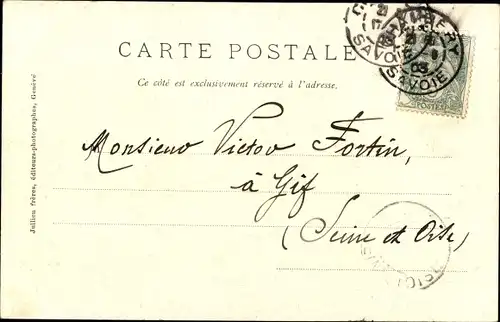 CARTE POSTALE
Ce côté est exclusivement réservé à l'adresse.
CHAMBÉRY
SAVOIE
SAVOIE
21
03
POSTES
Monsieur Victor Fortin,
à Gif
(Seine et Oise)
Jullien frères, éditeurs-photographes, Genève